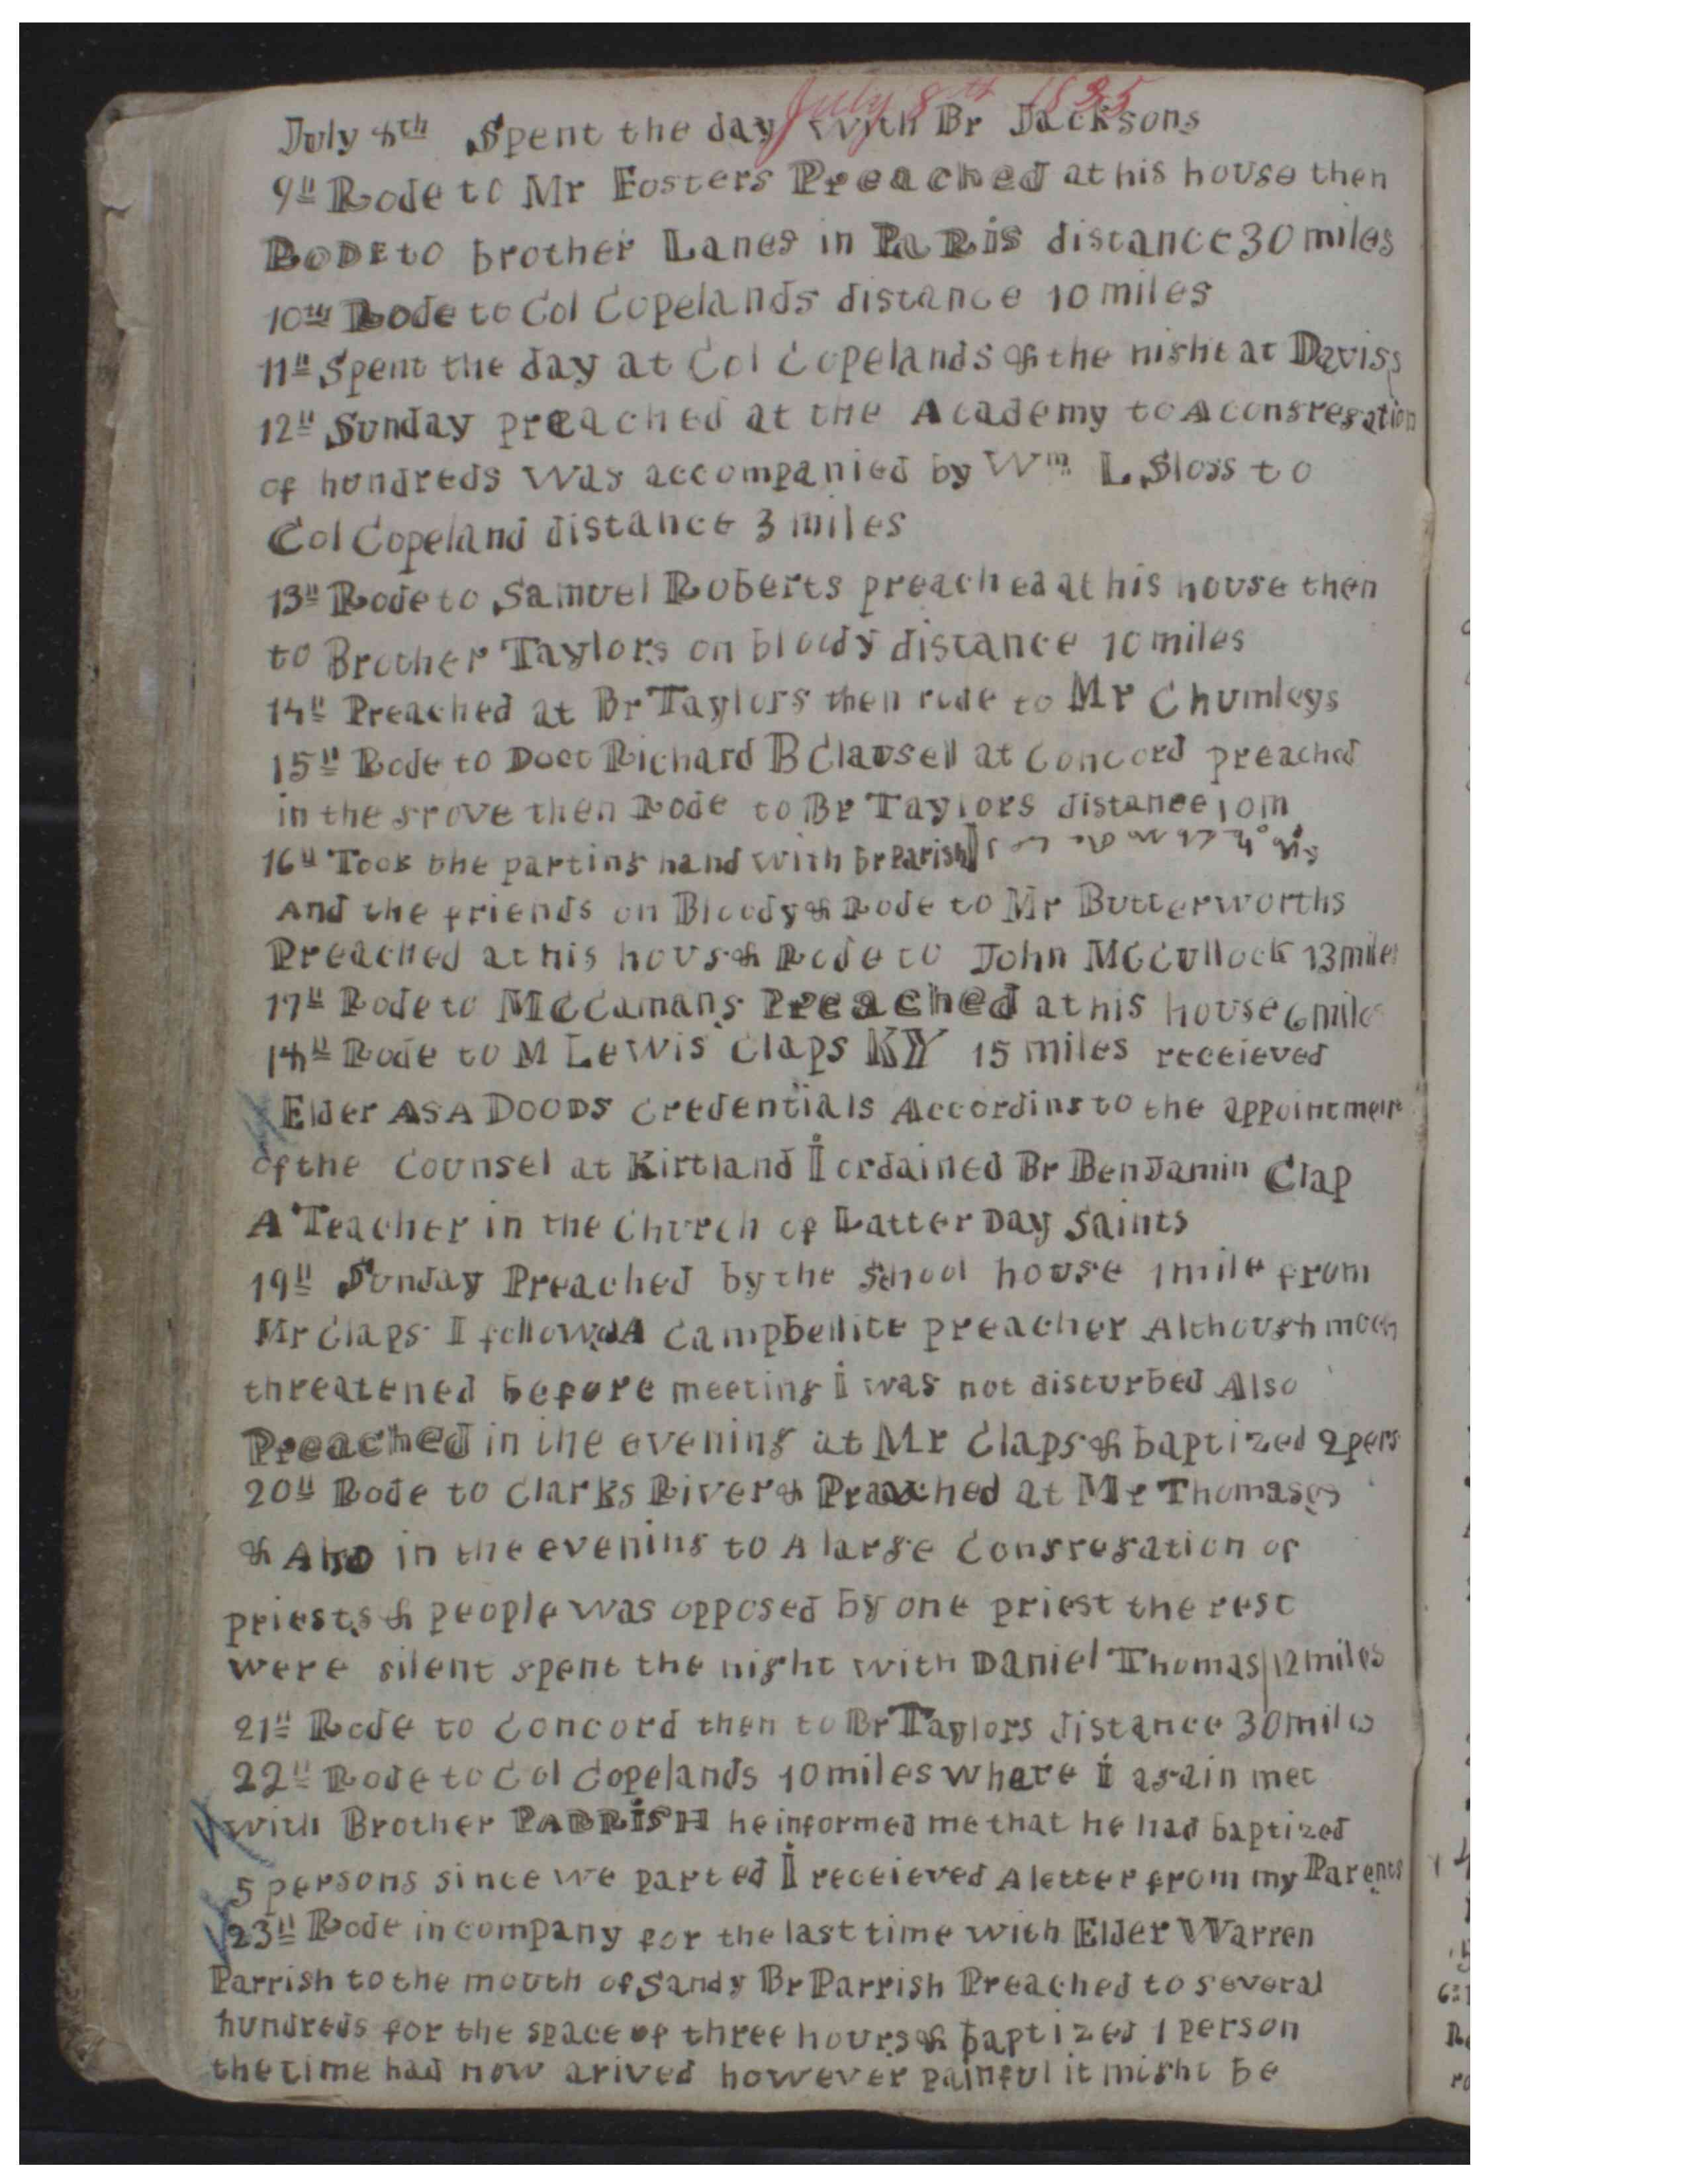 July 8th 1835
July 8th Spent the day with Br Jacksons
9th Rode to Mr Fosters Preached at his house then
RODE to brother Lanes in PaRis distance 30 miles
10th Rode to Col Copelands distance 10 miles
11th Spent the day at Col Copelands & the night at Daviss
12th Sunday preached at the Academy to A congregation
of hundreds was accompanied by Wm L Sloss to
Col Copeland distance 3 miles
13th Rode to Samuel Roberts preached at his house then
to Brother Taylors on bloody distance 10 miles
14th Preached at Br Taylors then rode to Mr Chumleys
15th Rode to Doct Richard B Clausell at Concord preached
in the grove then Rode to Br Taylors distance 10 m
16th Took the parting hand with br Parish
And the friends on Bloody & Rode to Mr Butterworths
Preached at his hous & Rode to John McCullock 13 miles
17th Rode to McCamans Preached at his house 6 miles
18th Rode to M Lewis Claps KY 15 miles receieved
Elder ASA DOODS credentials According to the appointment
of the Counsel at Kirtland I ordained Br Benjamin Clap
A Teacher in the Church of Latter Day Saints
19th Sunday Preached by the School house 1 mile from
Mr Claps I followd A Campbellite preacher Although much
threatened before meeting I was not disturbed Also
Preached in the evening at Mr Claps & baptized 2 pers
20th Rode to Clarks River & Preached at Mr Thomases
& Also in the evening to A large Congregation of
priests & people was opposed by one priest the rest
were silent spent the night with Daniel Thomas 12 miles
21st Rode to Concord then to Br Taylors distance 30 miles
22nd Rode to Col Copelands 10 miles where I again met
with Brother PARRISH he informed me that he had baptized
5 persons since we parted I receieved A letter from my Parents
23rd Rode in company for the last time with Elder Warren
Parrish to the mouth of Sandy Br Parrish Preached to several
hundreds for the space of three hours & baptized 1 person
the time had now arived however painful it might be